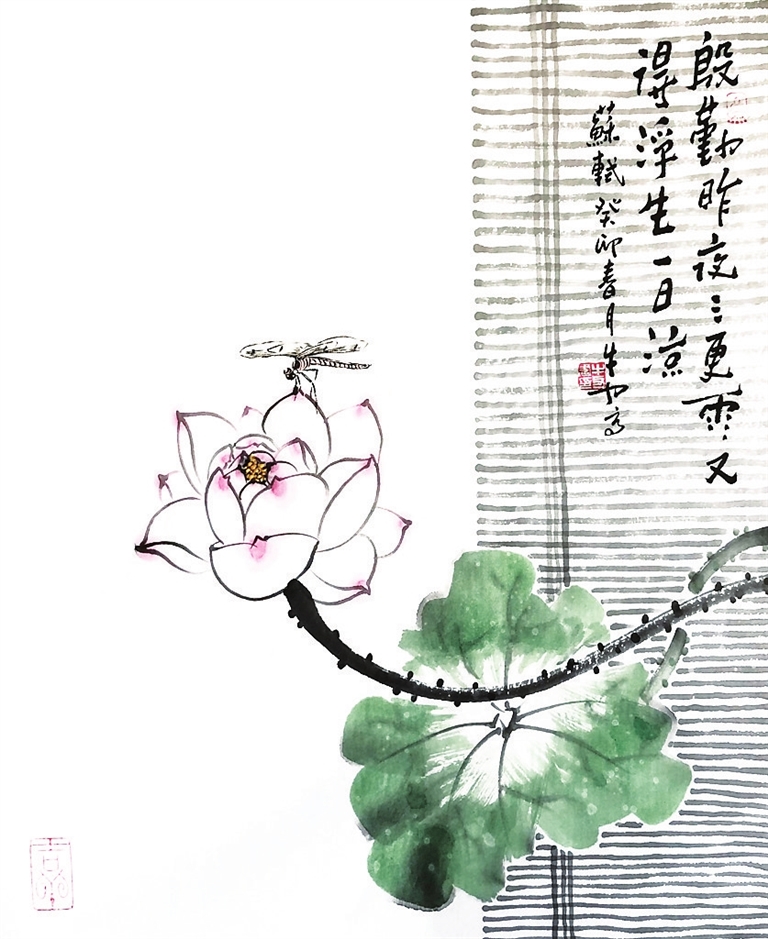 殷勤昨夜三更雨又
得浮生一日涼
蘇軾癸卯春月朱